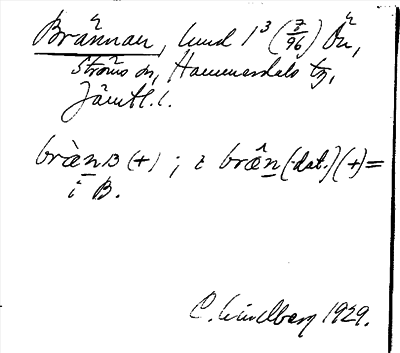 Brännan, lund 1³ (7/96) Ön,
Ströms sn, Hammerdals tg,
Jämtl. l.
bræ̀nɑ (+) ; i bræ̂n (dat.) (+) =
i B.
C. Lindberg 1929.